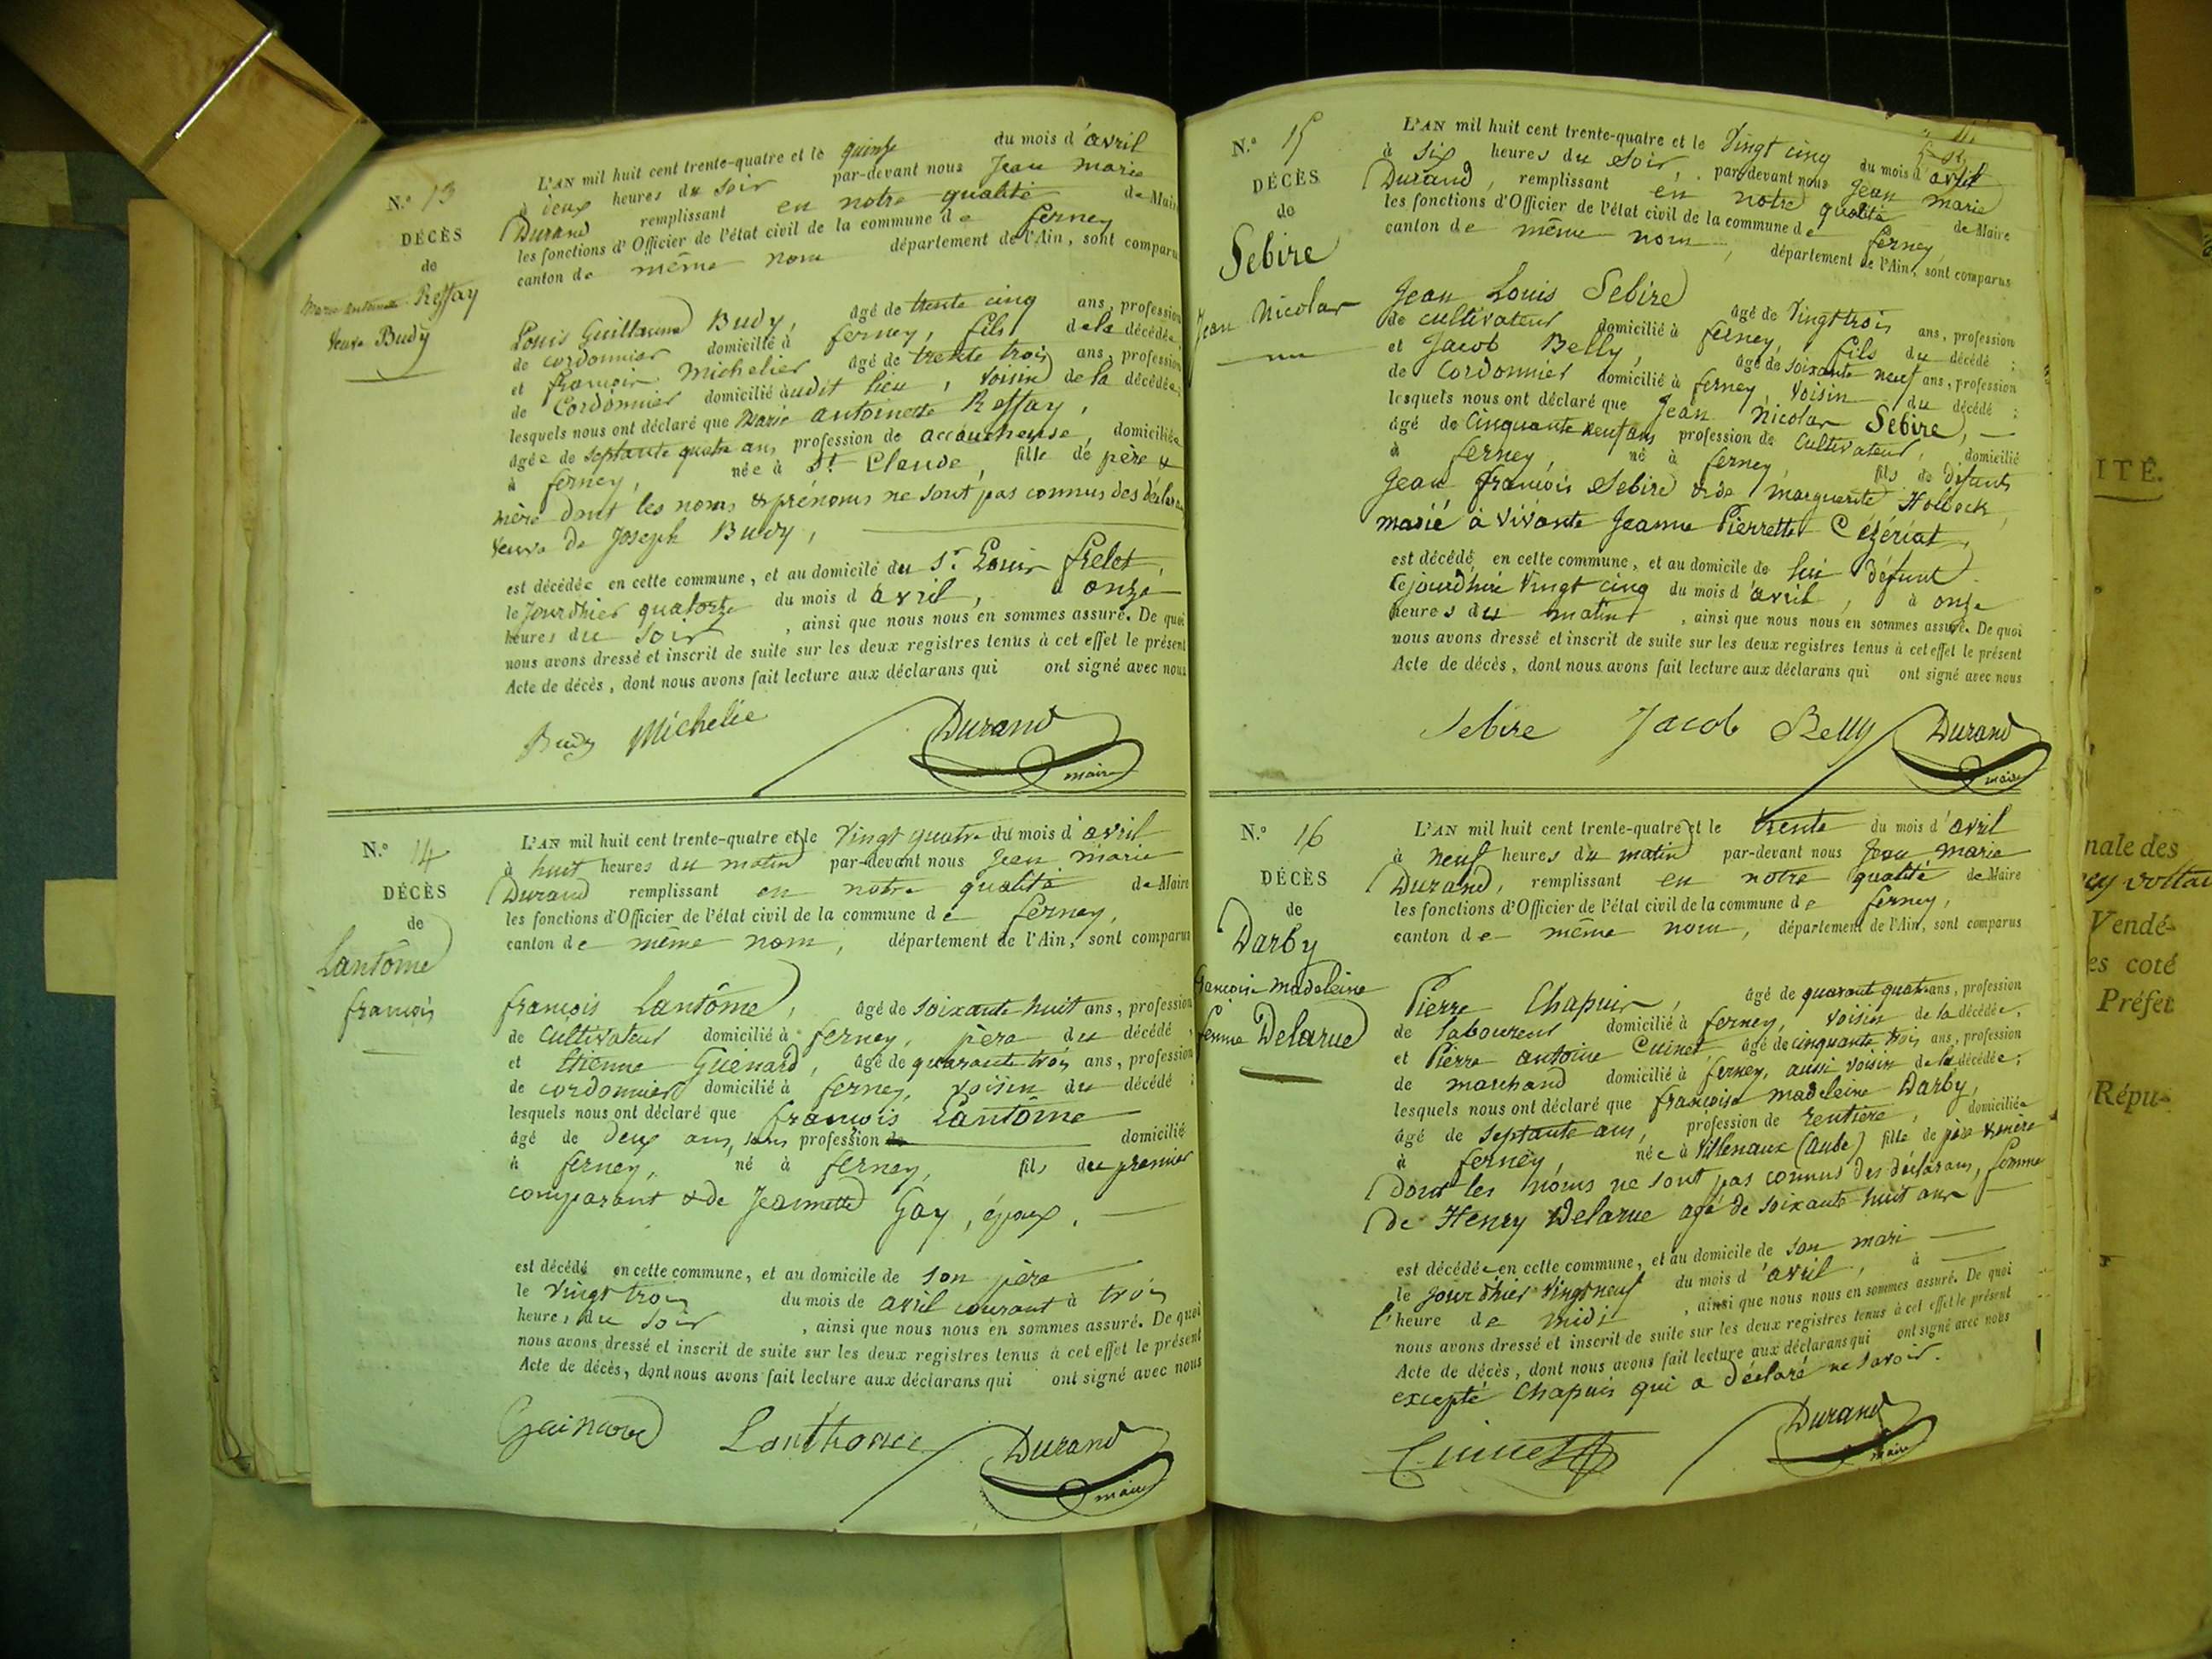 N.° 13
DÉCÈS
de
Marie antoinette Reffay
Veuve Budy
L'AN mil huit cent trente-quatre et le quinze du mois d'avril
à deux heures du soir par-devant nous Jean marie
Durand remplissant en notre qualité de Maire
les fonctions d'Officier de l'état civil de la commune de ferney
canton de même nom département de l'Ain, sont comparus
Louis Guillaume Budy, âgé de trente cinq ans, profession
de cordonnier domicilié à ferney, fils de la décédée,
et françois Michelier âgé de trente trois ans, profession
de Cordonnier domicilié audit lieu, voisin de la décédée;
lesquels nous ont déclaré que Marie antoinette Reffay,
âgée de septante quatre ans profession de accoucheuse, domiciliée
à ferney, née à St Claude, fille de père &
mère dont les noms & prénoms ne sont pas connus des déclarans
veuve de Joseph Budy,
est décédée en cette commune, et au domicile du Sr. Louis frelet,
le Jourdhier quatorze du mois d'avril, à onze
heures du soir, ainsi que nous nous en sommes assuré. De quoi
nous avons dressé et inscrit de suite sur les deux registres tenus à cet effet le présent
Acte de décès, dont nous avons fait lecture aux déclarans qui ont signé avec nous
Budy Michelie Durand
maire
N.° 14
DÉCÈS
de
Lantôme
françois
L'AN mil huit cent trente-quatre et le Vingt quatre du mois d'avril
à huit heures du matin par-devant nous Jean marie
Durand remplissant en notre qualité de Maire
les fonctions d'Officier de l'état civil de la commune de ferney,
canton de même nom, département de l'Ain, sont comparus
françois Lantôme, âgé de soixante huit ans, profession
de cultivateur domicilié à ferney, père du décédé,
et Etienne Guénard, âgé de quarante trois ans, profession
de cordonnier domicilié à ferney, voisin du décédé;
lesquels nous ont déclaré que françois Lantôme
âgé de deux ans, sans profession de domicilié
à ferney, né à ferney, fils du premier
comparant & de Jeannette Gay, époux.
est décédé en cette commune, et au domicile de son père
le vingt trois du mois de avril courant à trois
heures du soir, ainsi que nous nous en sommes assuré. De quoi
nous avons dressé et inscrit de suite sur les deux registres tenus à cet effet le présent
Acte de décès, dont nous avons fait lecture aux déclarans qui ont signé avec nous
Durand
maire
N.° 15
DÉCÈS
de
Sebire
Jean Nicolas
L'AN mil huit cent trente-quatre et le Vingt cinq du mois d'avril
à six heures du soir, par-devant nous Jean marie
Durand, remplissant en notre qualité de Maire
les fonctions d'Officier de l'état civil de la commune de ferney,
canton de même nom, département de l'Ain, sont comparus
Jean Louis Sebire âgé de Vingt trois ans, profession
de cultivateur domicilié à ferney, fils du décédé;
et Jacob Belly, âgé de soixante neuf ans, profession
de Cordonnier domicilié à ferney, voisin du décédé;
lesquels nous ont déclaré que Jean Nicolas Sebire,
âgé de Cinquante neuf ans profession de Cultivateur, domicilié
à ferney, né à ferney, fils de défunts
Jean françois Sebire & de Marguerite Holbock,
marié à vivante Jeanne Pierrette Cézériat,
est décédé en cette commune, et au domicile de lui défunt
cejourdhui Vingt cinq du mois d'avril, à onze
heures du matin, ainsi que nous nous en sommes assuré. De quoi
nous avons dressé et inscrit de suite sur les deux registres tenus à cet effet le présent
Acte de décès, dont nous avons fait lecture aux déclarans qui ont signé avec nous
Sebire Jacob Belly Durand
maire
N.° 16
DÉCÈS
de
Darby
françoise madeleine
femme Delarue
L'AN mil huit cent trente-quatre et le trente du mois d'avril
à neuf heures du matin par-devant nous Jean marie
Durand, remplissant en notre qualité de Maire
les fonctions d'Officier de l'état civil de la commune de ferney,
canton de même nom, département de l'Ain, sont comparus
Pierre Chapuis, âgé de quarant quatre ans, profession
de laboureur domicilié à ferney, voisin de la décédée,
et Pierre antoine Cuinet, âgé de cinquante trois ans, profession
de marchand domicilié à ferney, aussi voisin de la décédée;
lesquels nous ont déclaré que françoise madeleine Darby,
âgé de septante ans, profession de rentiere, domiciliée
à ferney, née à Villenaux (aube) fille de père & mère
dont les noms ne sont pas connus des déclarans, femme
de Henry Delarue agé de soixante huit ans
est décédée en cette commune, et au domicile de son mari
le jourdhier vingt neuf du mois d'avril, à
l'heure de midi, ainsi que nous nous en sommes assuré. De quoi
nous avons dressé et inscrit de suite sur les deux registres tenus à cet effet le présent
Acte de décès, dont nous avons fait lecture aux déclarans qui ont signé avec nous
excepté Chapuis qui a déclaré ne savoir.
Cuinet Durand
maire
ITÉ.
nale des
ey voltai
Vendé-
es coté
Préfet
Répu-